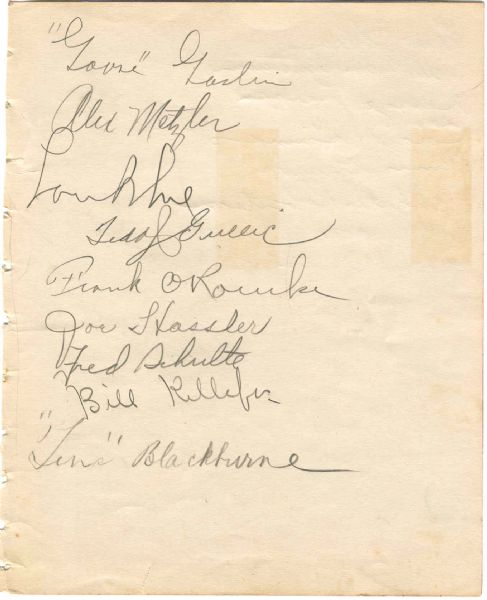 "Goose" Goslin
Alex Metzler
Lou Blue
Ted J Gullic
Frank O'Rourke
Joe Hassler
Fred Schulte
Bill Killefer
"Lena" Blackburne